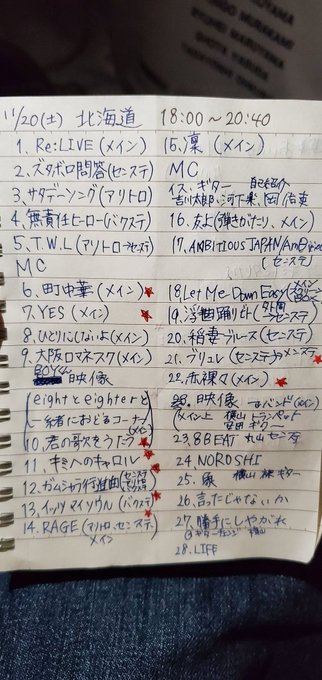 OYAMA
NGO MURAKAMI
RYUHEI MARUYAMA
SHOTA YASUDA
TADAYOSHI OHKURA
11/20(土) 北海道 18:00〜20:40
1. Re:LIVE (メイン)
2. ズタボロ問答(センステ)
3. サタデーソング(アリトロ)
4. 無責任ヒーロー(バクステ)
5. T.W.L(アリトロ→センステ)
MC
6. 町中華(メイン)★
7. YES (メイン) ★
8. ひとりにしないよ(メイン)
9. 大阪ロマネスク(メイン)
BOYくん
映像
(eightとeighterと
一緒におどるコーナー
(メイン)
10. 君の歌をうたう★
11. キミへのキャロル★
12. ガムシャラ行進曲(センステ
13. イッツマイソウル(バクステ)★
14. RAGE (アリトロ、センステ、
メイン)
15. 凛 (メイン)
MC
イス、ギター 自己紹介
16. 友よ(弾きがたり、メイン)
17. AMBITIOUS JAPAN/
(センステ)
18. Let Me Down Easy(メイン
19. 浮世踊リビト(
センステ)
20. 稲妻ブルース(センステ)
21. ブリュレ (センステ→メンステ)★
22. 赤裸々(メイン)★
映像 →バンド(メイン)
(メイン上 横山 トランペット
安田 ギター
23. 8BEAT 丸山 センステ
24. NOROSHI
25. 象 横山 ギター
26. 言ったじゃないか
27. 勝手にしやがれ
28. LIFE